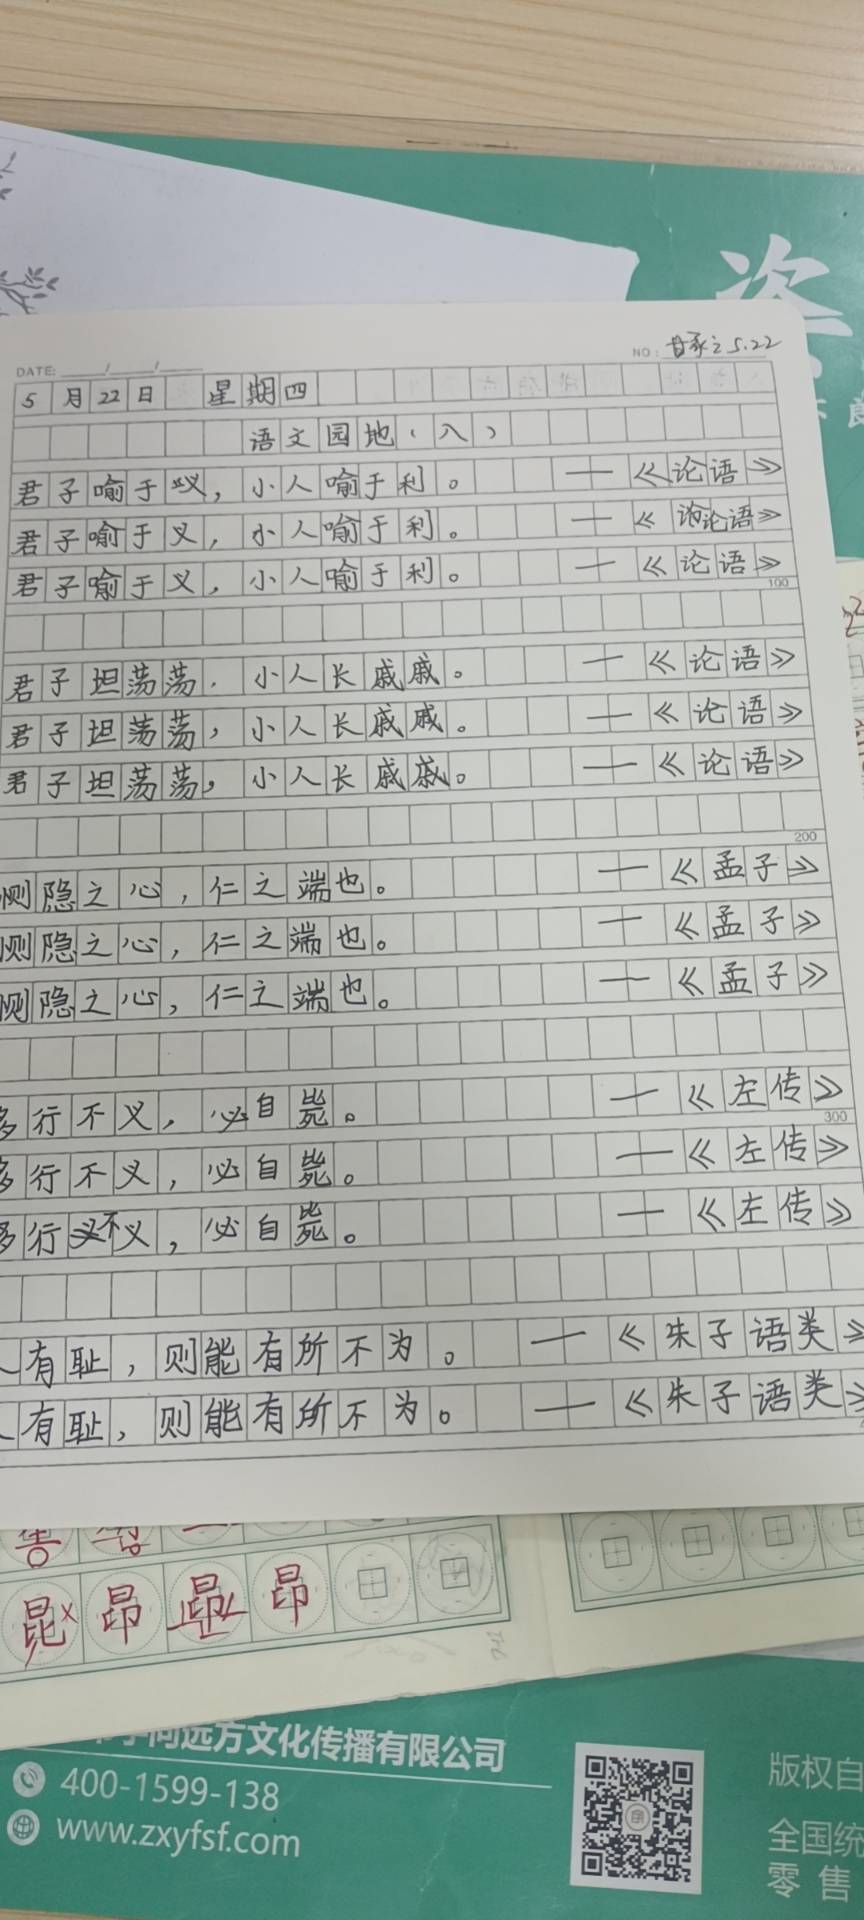 DATE: / /
NO: 5.22
5月22日 星期四
语文园地(八)
君子喻于义，小人喻于利。 —《论语》
君子喻于义，小人喻于利。 —《论语》
君子喻于义，小人喻于利。 —《论语》
100
君子坦荡荡，小人长戚戚。 —《论语》
君子坦荡荡，小人长戚戚。 —《论语》
君子坦荡荡，小人长戚戚。 —《论语》
200
恻隐之心，仁之端也。 —《孟子》
恻隐之心，仁之端也。 —《孟子》
恻隐之心，仁之端也。 —《孟子》
多行不义，必自毙。 —《左传》
300
多行不义，必自毙。 —《左传》
多行不义，必自毙。 —《左传》
人有耻，则能有所不为。 —《朱子语类》
人有耻，则能有所不为。 —《朱子语类》
昆 昂 昂 昂
向远方文化传播有限公司
400-1599-138
www.zxyfsf.com
版权自
全国统
零售